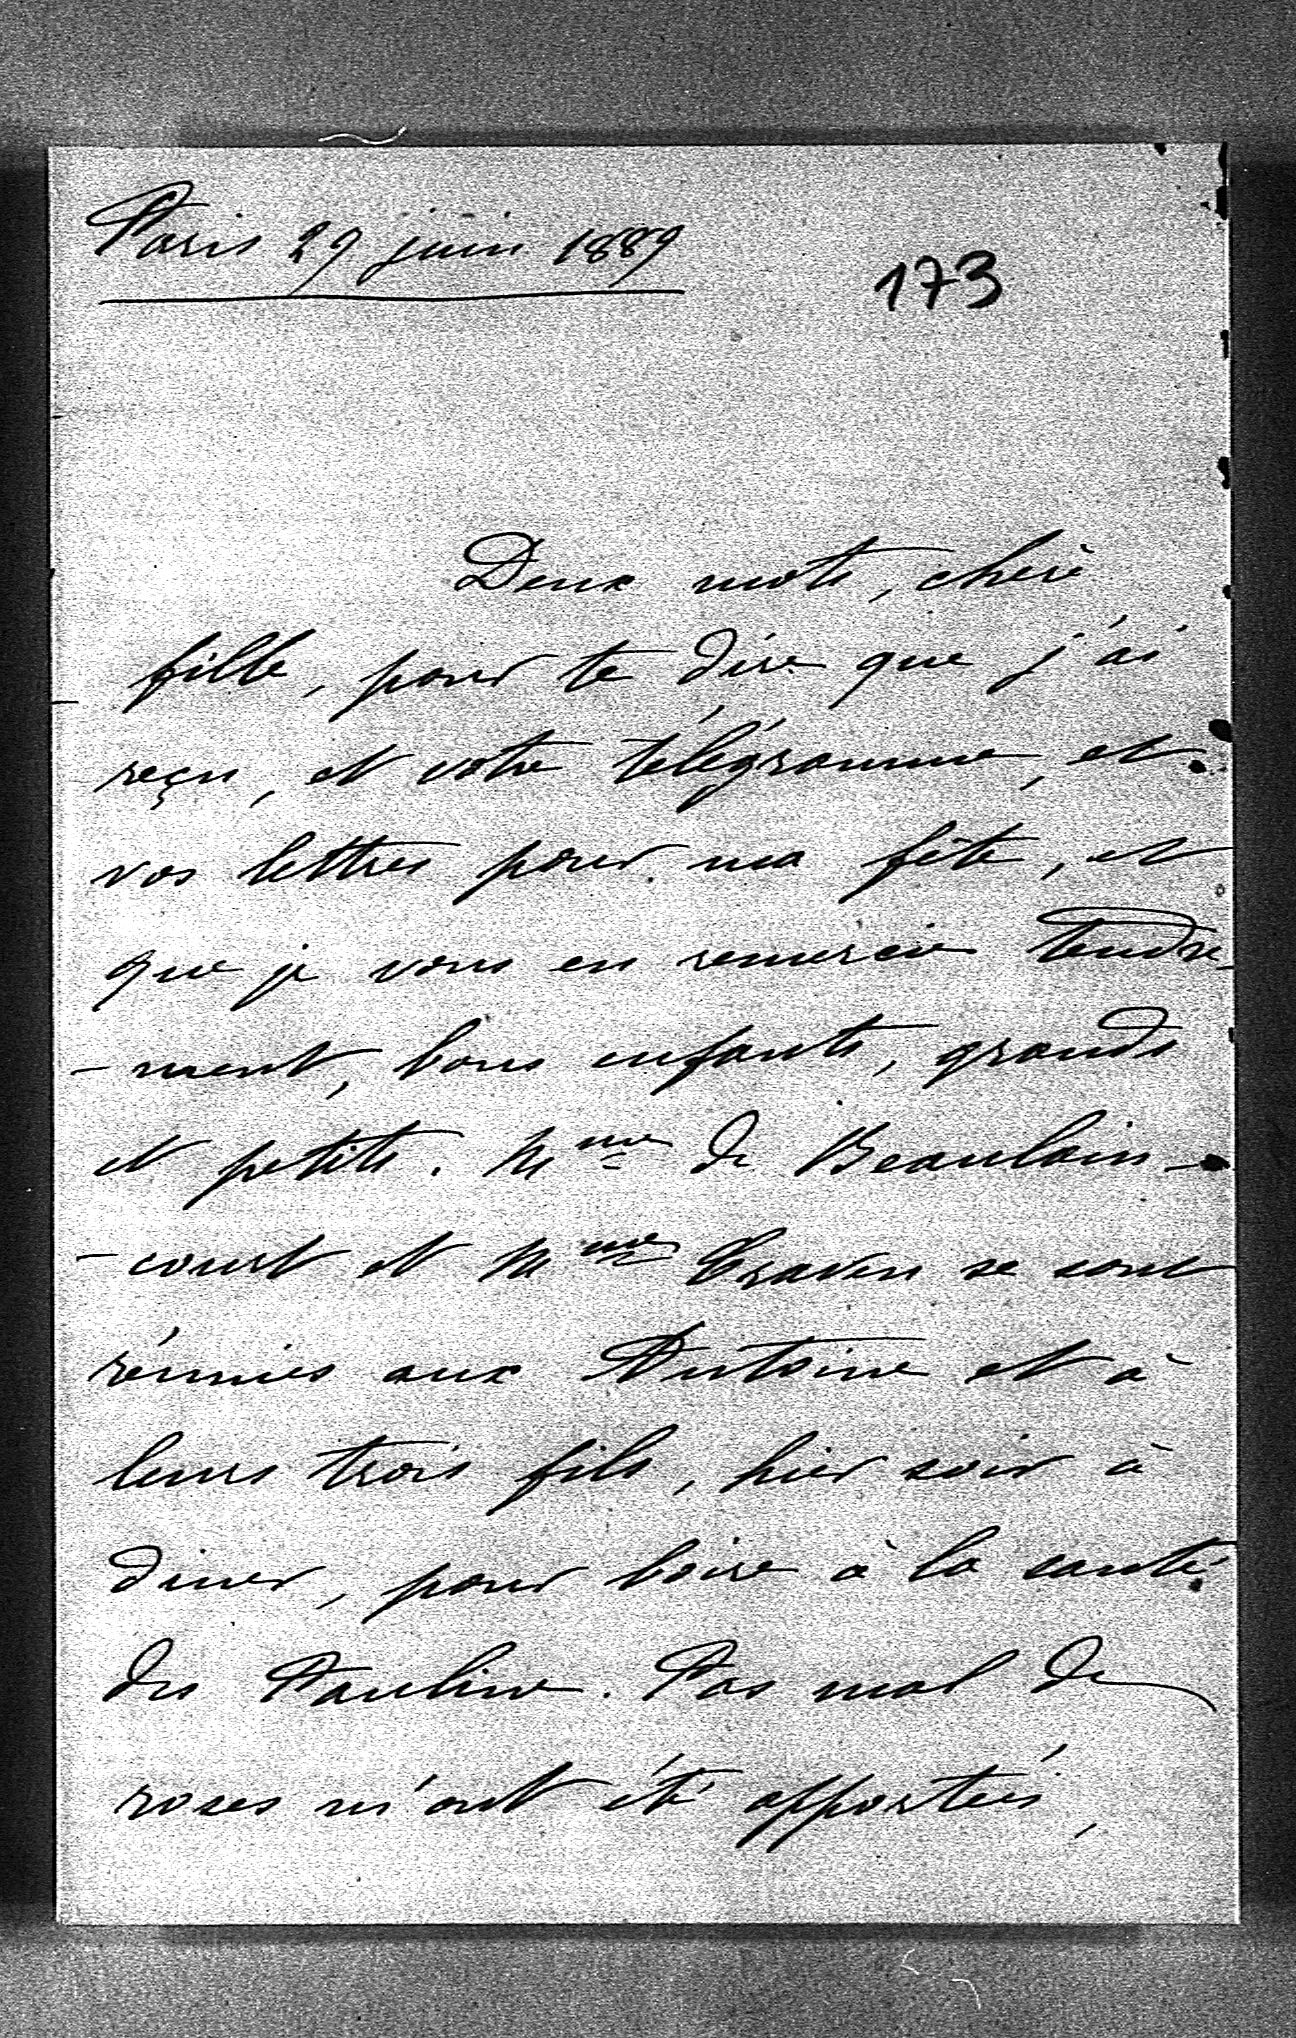 Paris 29 juin 1889
173
Deux mots, chère
fille, pour te dire que j'ai
reçu, et votre télégramme, et
vos lettres pour ma fête, et
que je vous en remercie tendre-
-ment, bons enfants, grands
et petits. Mme de Beaulain-
-court et Mme Craven se sont
réunies aux Antoine et à
leurs trois fils, hier soir à
diner, pour boire à la santé
des Pauline. Pas mal de
roses m'ont été apportées,